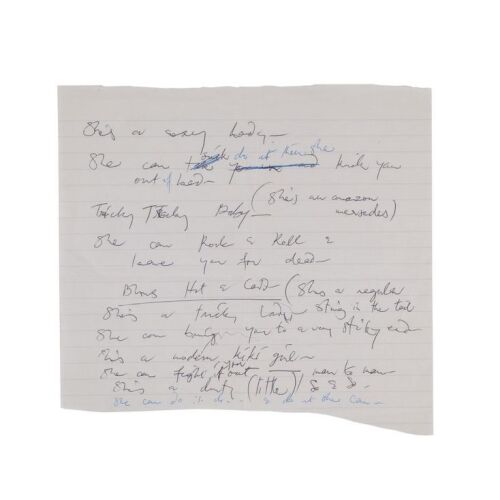 She's a sexy lady –
She can do it kick you
out of bed –
Tricky Tricky Baby – (She's an amazon
mercedes)
She can Rock & Roll &
leave you for dead –
Blows Hot & Cold – (She's a regular
She's a tricky Lady – sting in the tail
She can bring you to a very sticky end –
She's a modern girl –
She can fight it out man to man –
She's a dirty (little)
She can do it & do it she can –